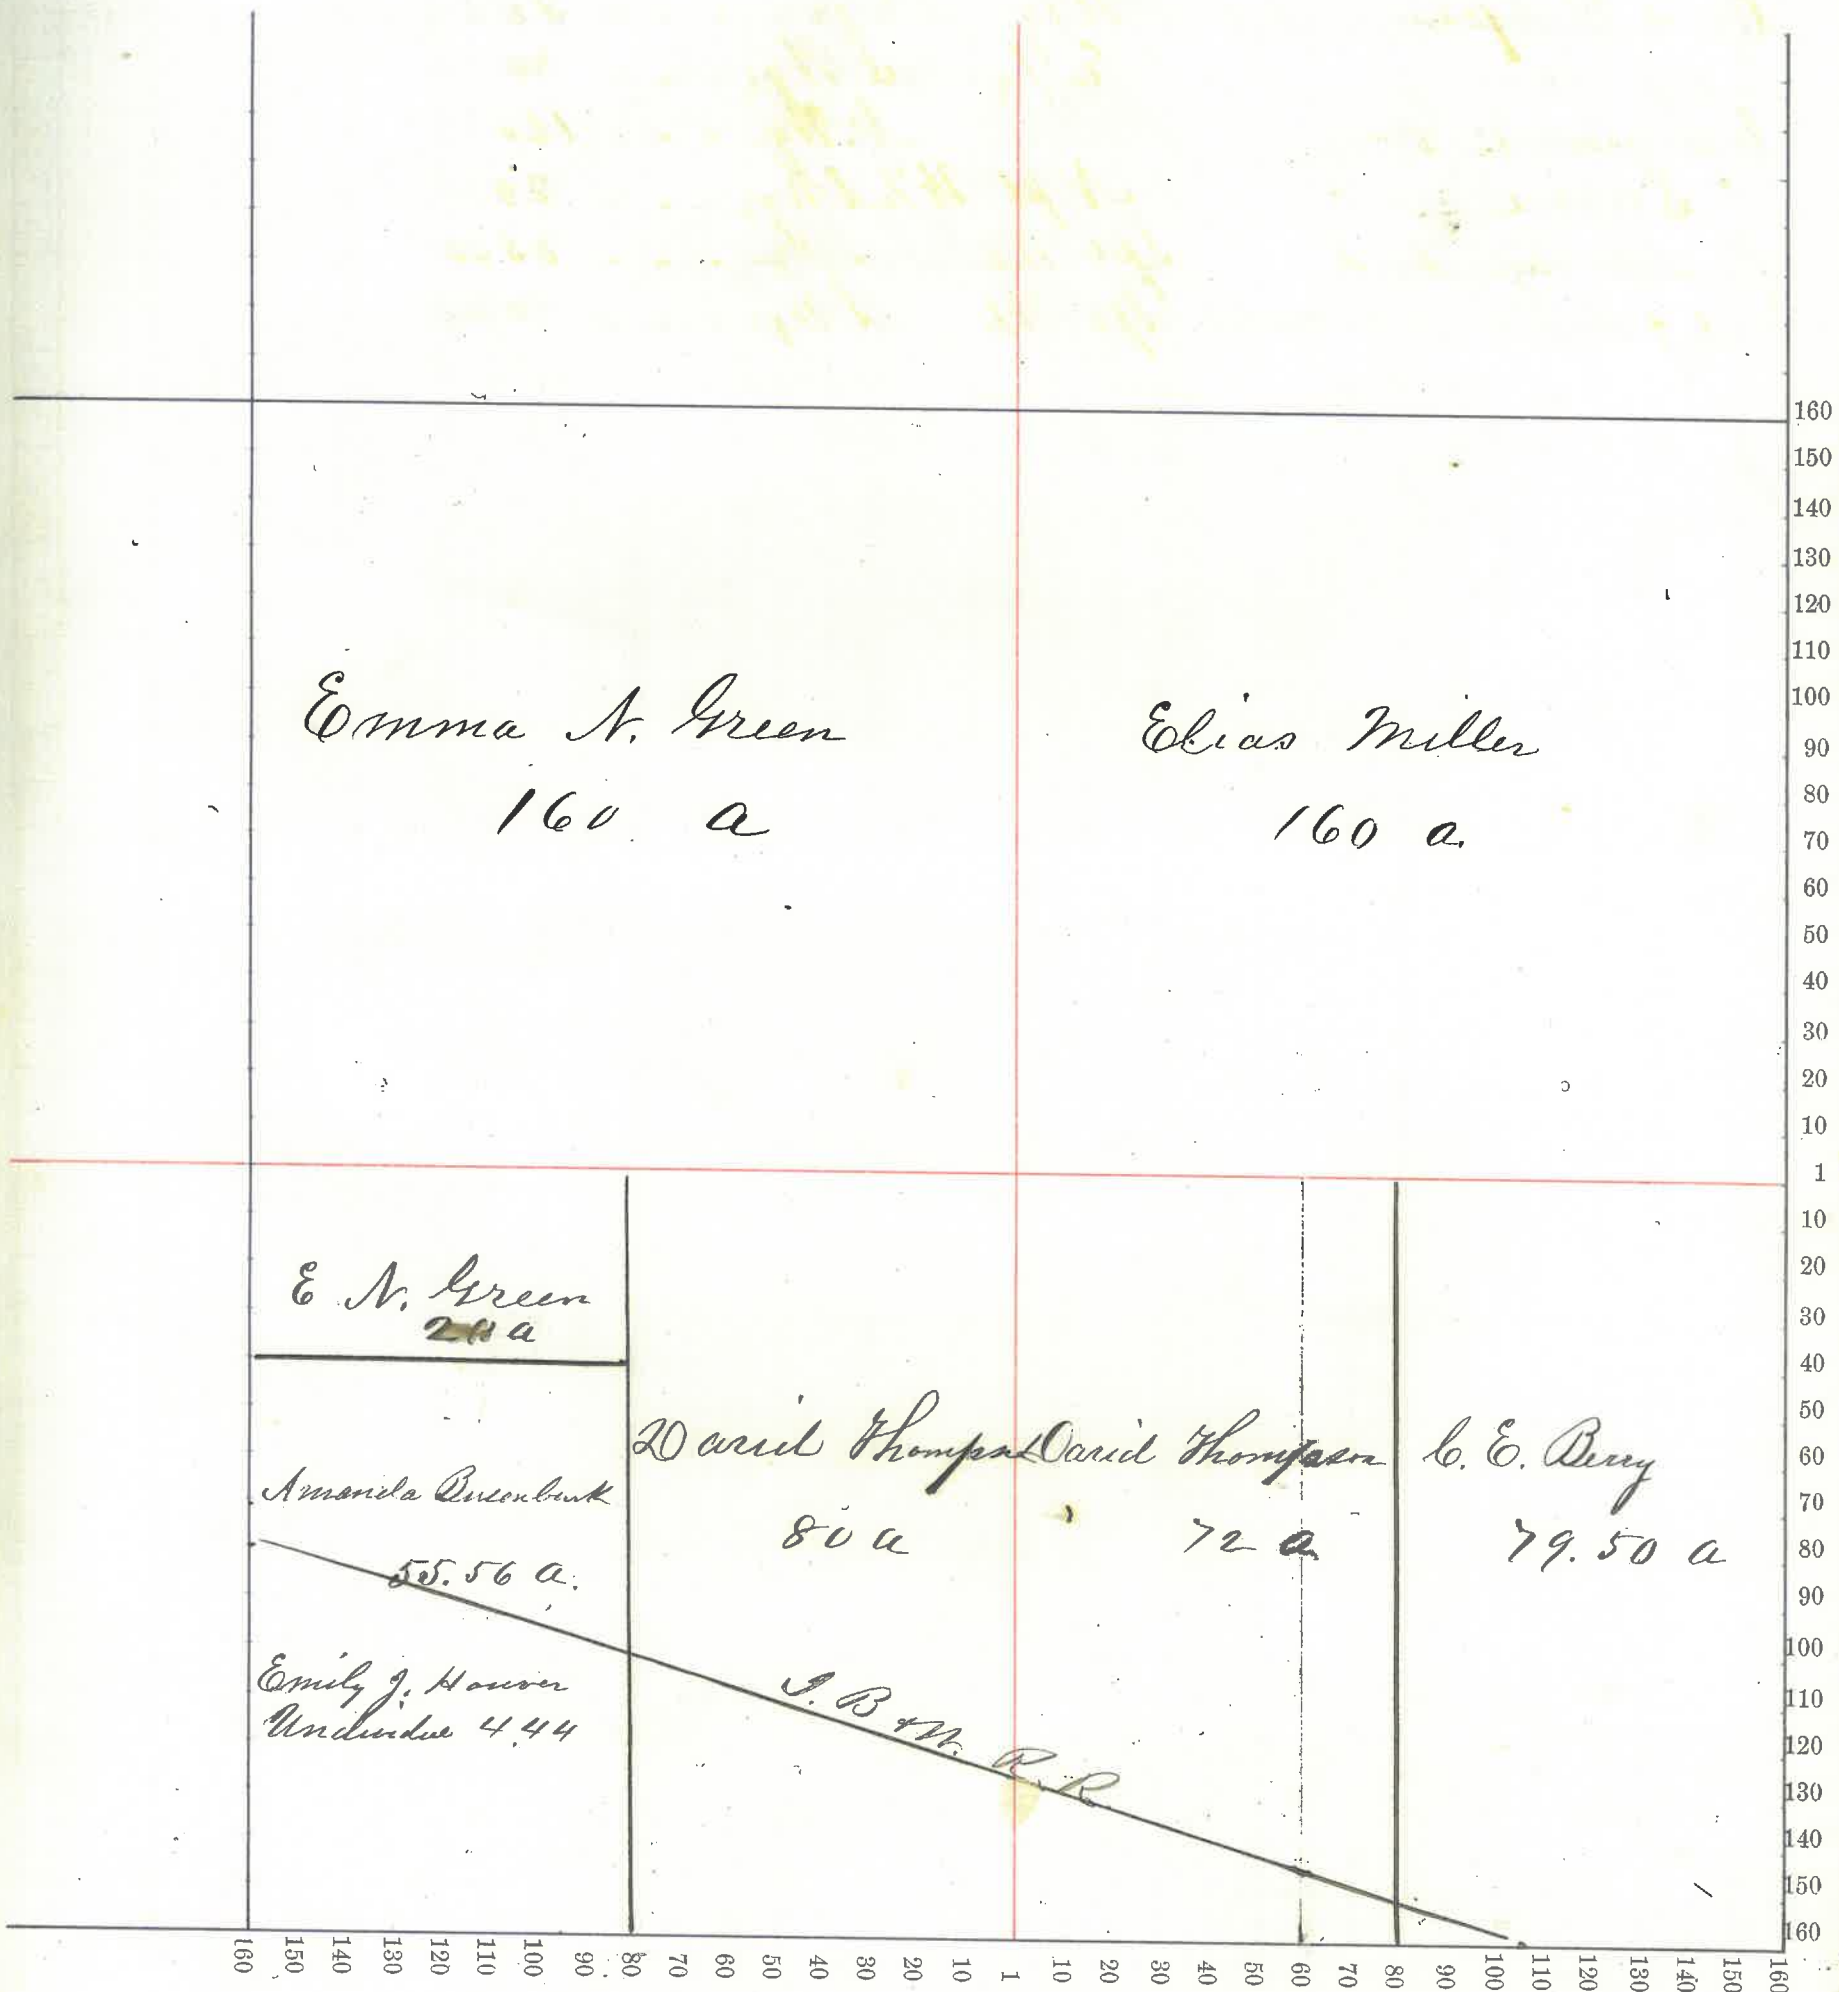 Emma N. Green
160 a
Elias Miller
160 a.
E N. Green
20 a
Amanda Busenbark
55.56 a.
Emily J. Hoover
4.44
David Thompson
80 a
David Thompson
72 a
C. E. Berry
79.50 a
I. B & W. R. R.
160
150
140
130
120
110
100
90
80
70
60
50
40
30
20
10
1
10
20
30
40
50
60
70
80
90
100
110
120
130
140
150
160
160 150 140 130 120 110 100 90 80 70 60 50 40 30 20 10 1 10 20 30 40 50 60 70 80 90 100 110 120 130 140 150 160